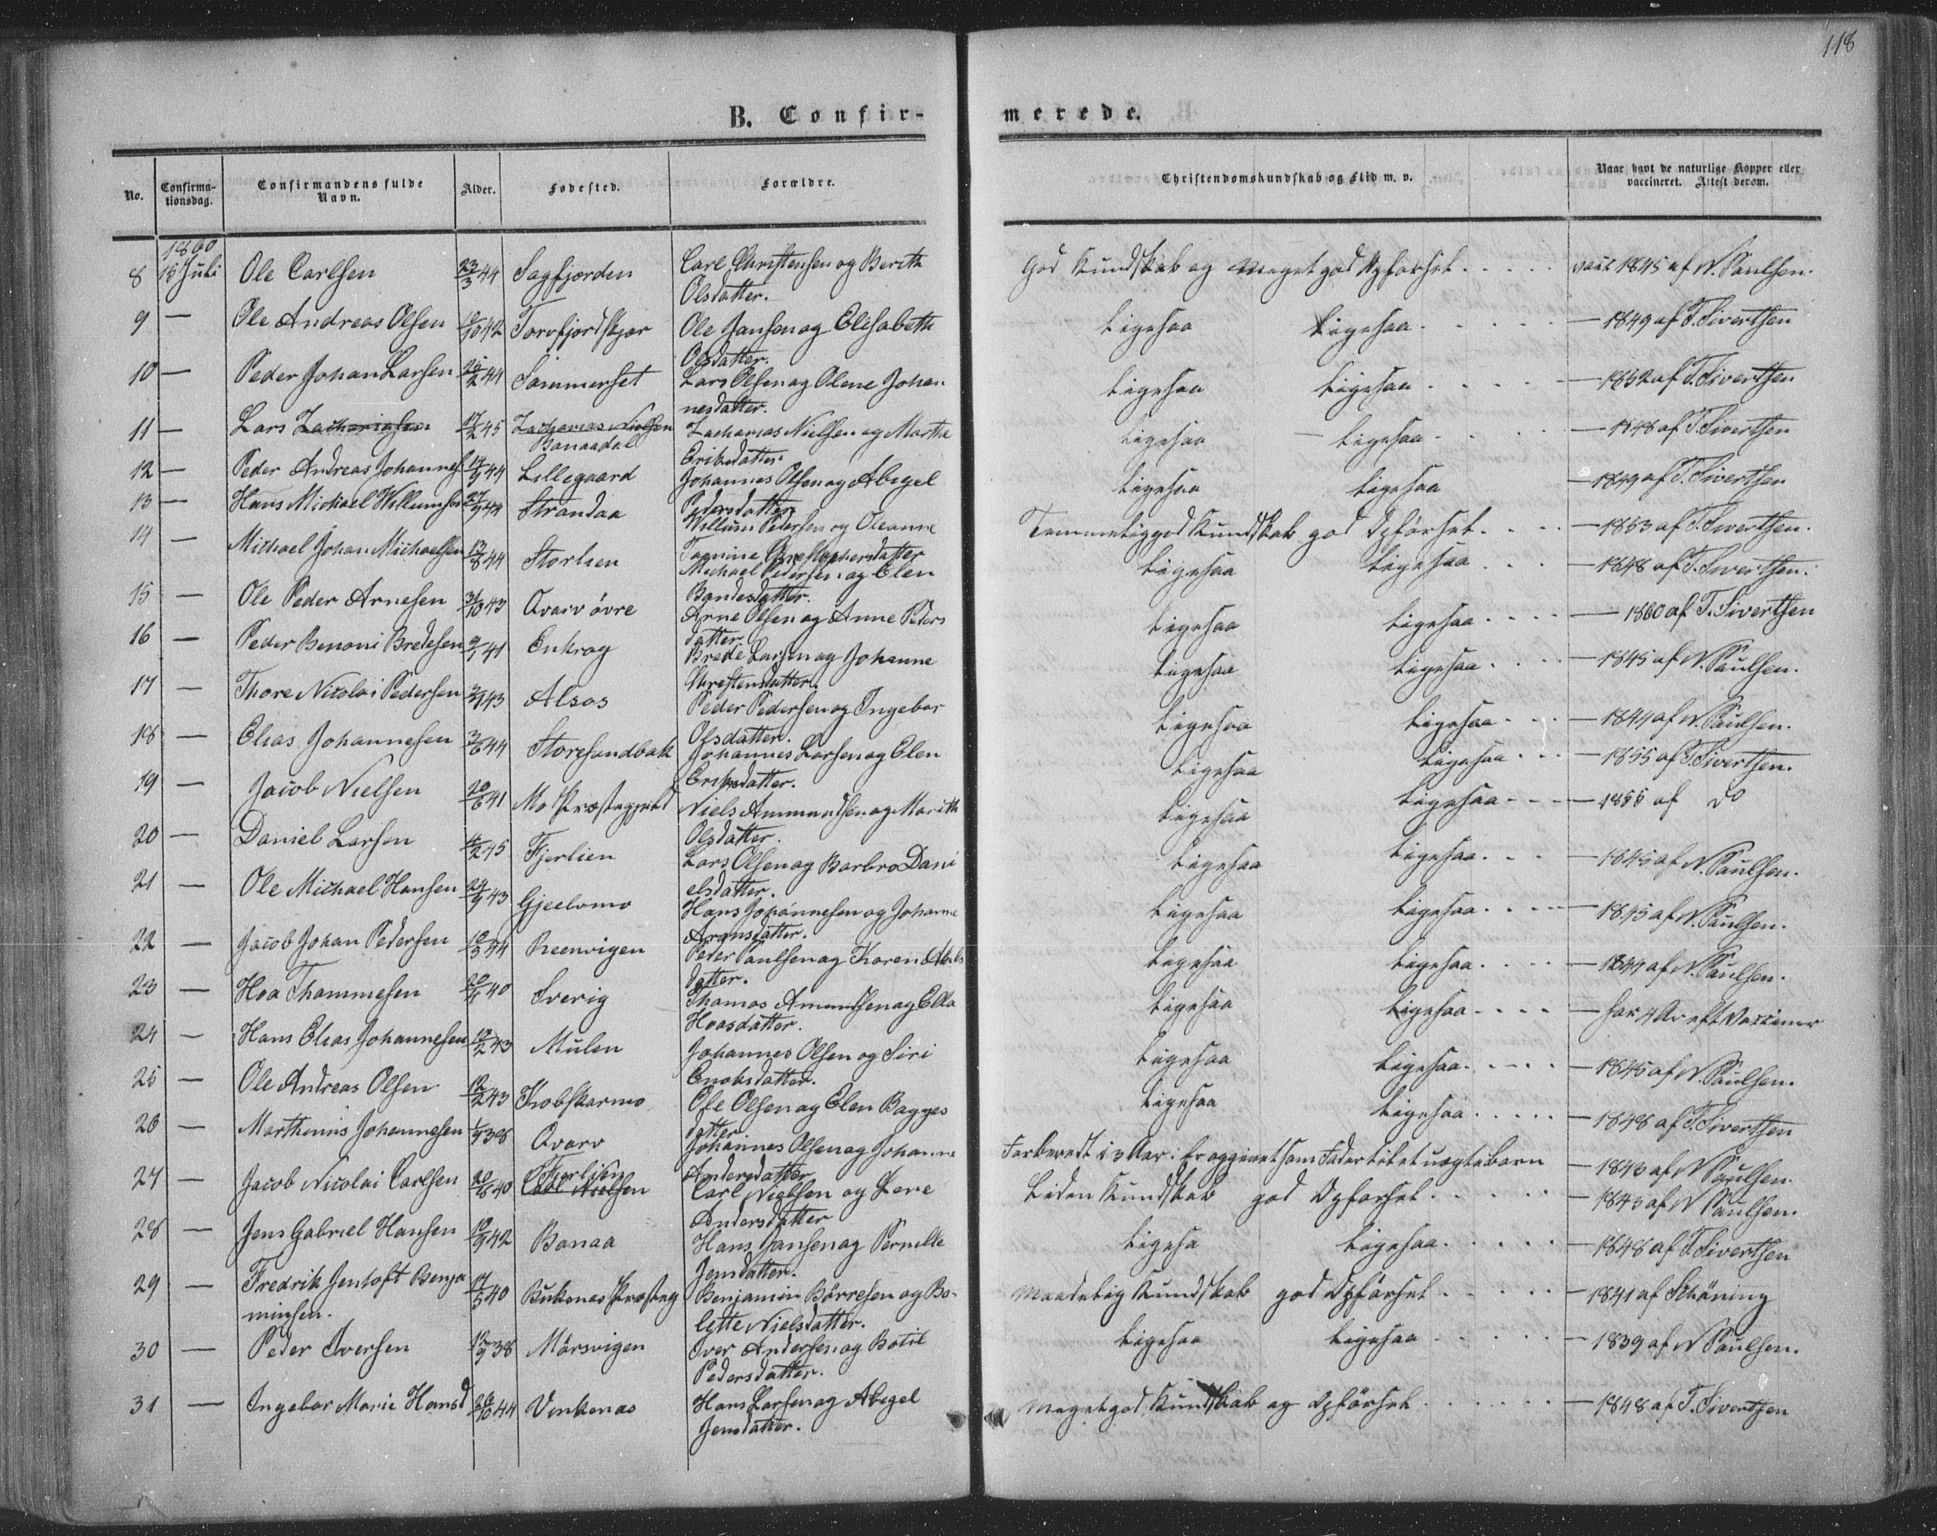 118
B. Confirmerede.
No. Confirmationsdag. Confirmandens fulde Navn. Alder. Fødested. Forældre. Christendomskundskab og Flid m. v. Naar havt de naturlige Kopper eller vaccineret. Attest derom.
1860
8 15 Juli Ole Carlsen 23/3 44 Sagfjorden Carl Christensen og Berith Olsdatter. God Kundskab og meget god Opførsel. vacc 1845 af N. Paulsen.
9 — Ole Andreas Olsen 42 Torvfjordskjær Ole Jansen og Elisabeth Olsdatter. Ligesaa Ligesaa — 1849 af T. Sivertsen
10 — Peder Johan Larsen 44 Sommerset Lars Olsen og Olene Johannesdatter. Ligesaa Ligesaa — 1852 af T. Sivertsen
11 — Lars Zachariasen 45 Zacharias Nielsen Bonaadal Zacharias Nielsen og Martha Eriksdatter. Ligesaa — Ligesaa — 1848 af T. Sivertsen
12 — Peder Andreas Johannes 44 Lillegaard Johannes Olsen og Abigel Pedersdatter Ligesaa Ligesaa — 1849 af T. Sivertsen
13 — Hans Michael Willumsen 27/9 44 Strandaa Willum Pedersen og Oleanne Christophersdatter Temmelig god Kundskab god Opførsel. — 1853 af T. Sivertsen.
14 — Michael Johan Michaelsen 13/8 44 Storlien Michael Pedersen og Elen Bandesdatter. Ligesaa Ligesaa — 1848 af T. Sivertsen.
15 — Ole Peder Arnesen 31/10 43 Qvarv øvre Arne Olsen og Anne Pedersdatter Ligesaa Ligesaa — 1860 af T. Sivertsen
16 — Peder Benoni Bredesen 41 Enkrog Brede Larsen og Johanne Christensdatter. Ligesaa Ligesaa — 1845 af N. Paulsen.
17 — Thore Nicolai Pedersen 43 Alsos Peder Pedersen og Ingebor Olsdatter. Ligesaa Ligesaa — 1844 af N. Paulsen.
18 — Elias Johannesen 3/6 44 Storesundbak Johannes Larsen og Elen Eriksdatter. Ligesaa Ligesaa — 1855 af T. Sivertsen.
19 — Jacob Nielsen 20/6 41 Mo Præstegjeld Niels Ammundsen og Marith Olsdatter. Ligesaa Ligesaa — 1855 af do
20 — Daniel Larsen 45 Fjerlien Lars Olsen og Barbro Danielsdatter. Ligesaa Ligesaa — 1845 af N. Paulsen.
21 — Ole Michael Hansen 43 Gjeelomo Hans Johannesen og Johanne Aronsdatter. Ligesaa Ligesaa — 1845 af N. Paulsen.
22 — Jacob Johan Pedersen 44 Reenvigen Peder Paulsen og Karen Abelsdatter. Ligesaa Ligesaa — 1844 af N. Paulsen.
23 — Hoa Thammesen 40 Sverig Thomas Amundsen og Ella Hoasdatter. Ligesaa Ligesaa — for 4 Aar
24 — Hans Elias Johannesen 43 Mulen Johannes Olsen og Siri Enoksdatter. Ligesaa Ligesaa — 1845 af N. Paulsen.
25 — Ole Andreas Olsen 43 Kobskarmo Ole Olsen og Elen Baggesdatter Ligesaa Ligesaa — 1848 af T. Sivertsen
26 — Marthinus Johannesen 38 Qvarv Johannes Olsen og Johanne Andersdatter Forberedt i 3 Aar. Er opgivet som Fader til et uægte barn — 1843 af N. Paulsen.
27 — Jacob Nicolai Carlsen 20/8 40 Fjerlien Carl Nielsen Carl Nielsen og Lene Andersdatter Liden Kundskab god Opførsel — 1843 af N. Paulsen.
28 — Jens Gabriel Hansen 42 Bonaa Hans Jansen og Pernille Jensdatter. Ligesa Ligesaa — 1848 af T. Sivertsen
29 — Fredrik Jentoft Benjaminsen. 17/5 40 Buksnes Præsteg Benjamin Børresen og Bolette Nielsdatter. Maadelig Kundskab god Opførsel — 1841 af Schöning
30 — Peder Iversen 38 Mørsvigen Iver Andersen og Botil Pedersdatter. Ligesaa Ligesaa — 1839 af N. Paulsen.
31 — Ingebor Marie Hansd 44 Vinkenes Hans Larsen og Abigel Jensdatter. Meget god Kundskab og Opførsel — 1848 af T. Sivertsen